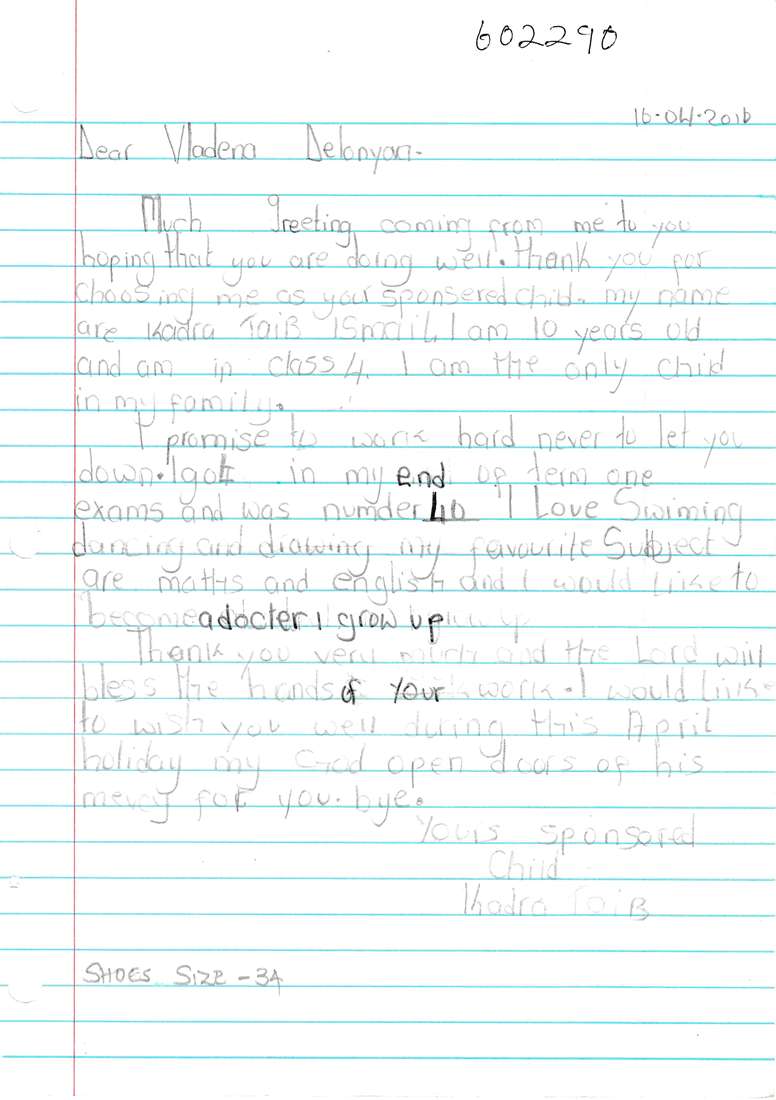 602290
16-04-2016
Dear Vladena Delonyan-
Much Greeting coming from me to you
hoping that you are doing well. thank you for
choosing me as your sponsered child. my name
are Kadra TaiB ISmail, I am 10 years old
and am in class 4. I am the only child
in my family.
I promise to work hard never to let you
down. I got in my end of term one
exams and was numder 40 I Love Swiming
dancing and drawing my favourite Subject
are maths and english and I would liike to
become adocter I grow up
Thank you very much and the Lord will
bless the hands of your work. I would like
to wish you well during this April
holiday my God open doors of his
mercy for you. bye.
Yours sponsored
Child
Kadra TaiB
SHOES SIZE - 34